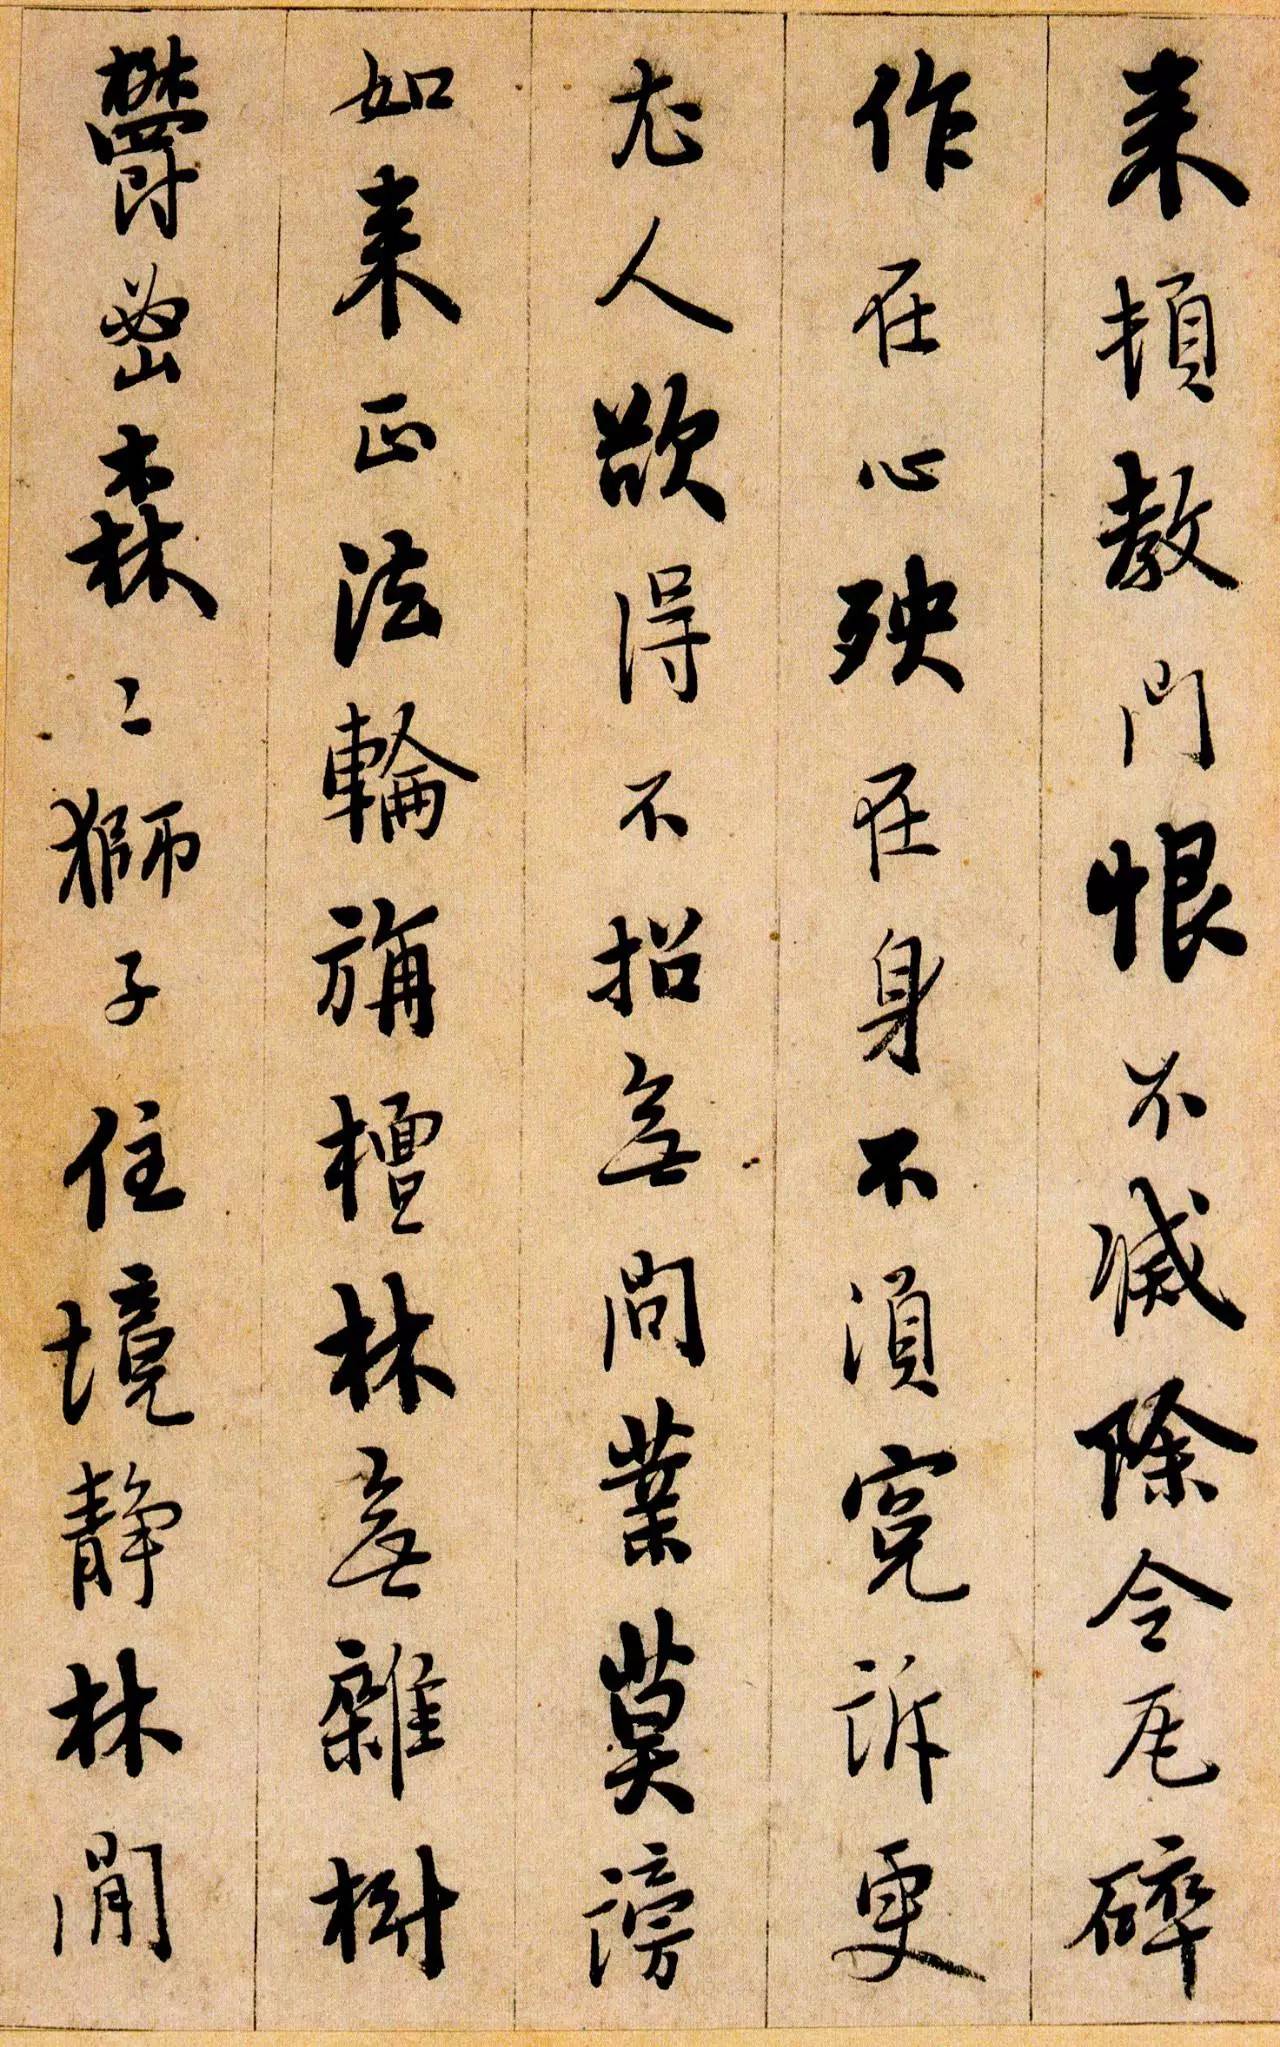 来頓教門恨不滅除令瓦碎
作在心殃在身不須寃訴更
尤人欲得不招無間業莫謗
如来正法輪旃檀林無雜樹
欝密森〻獅子住境静林間